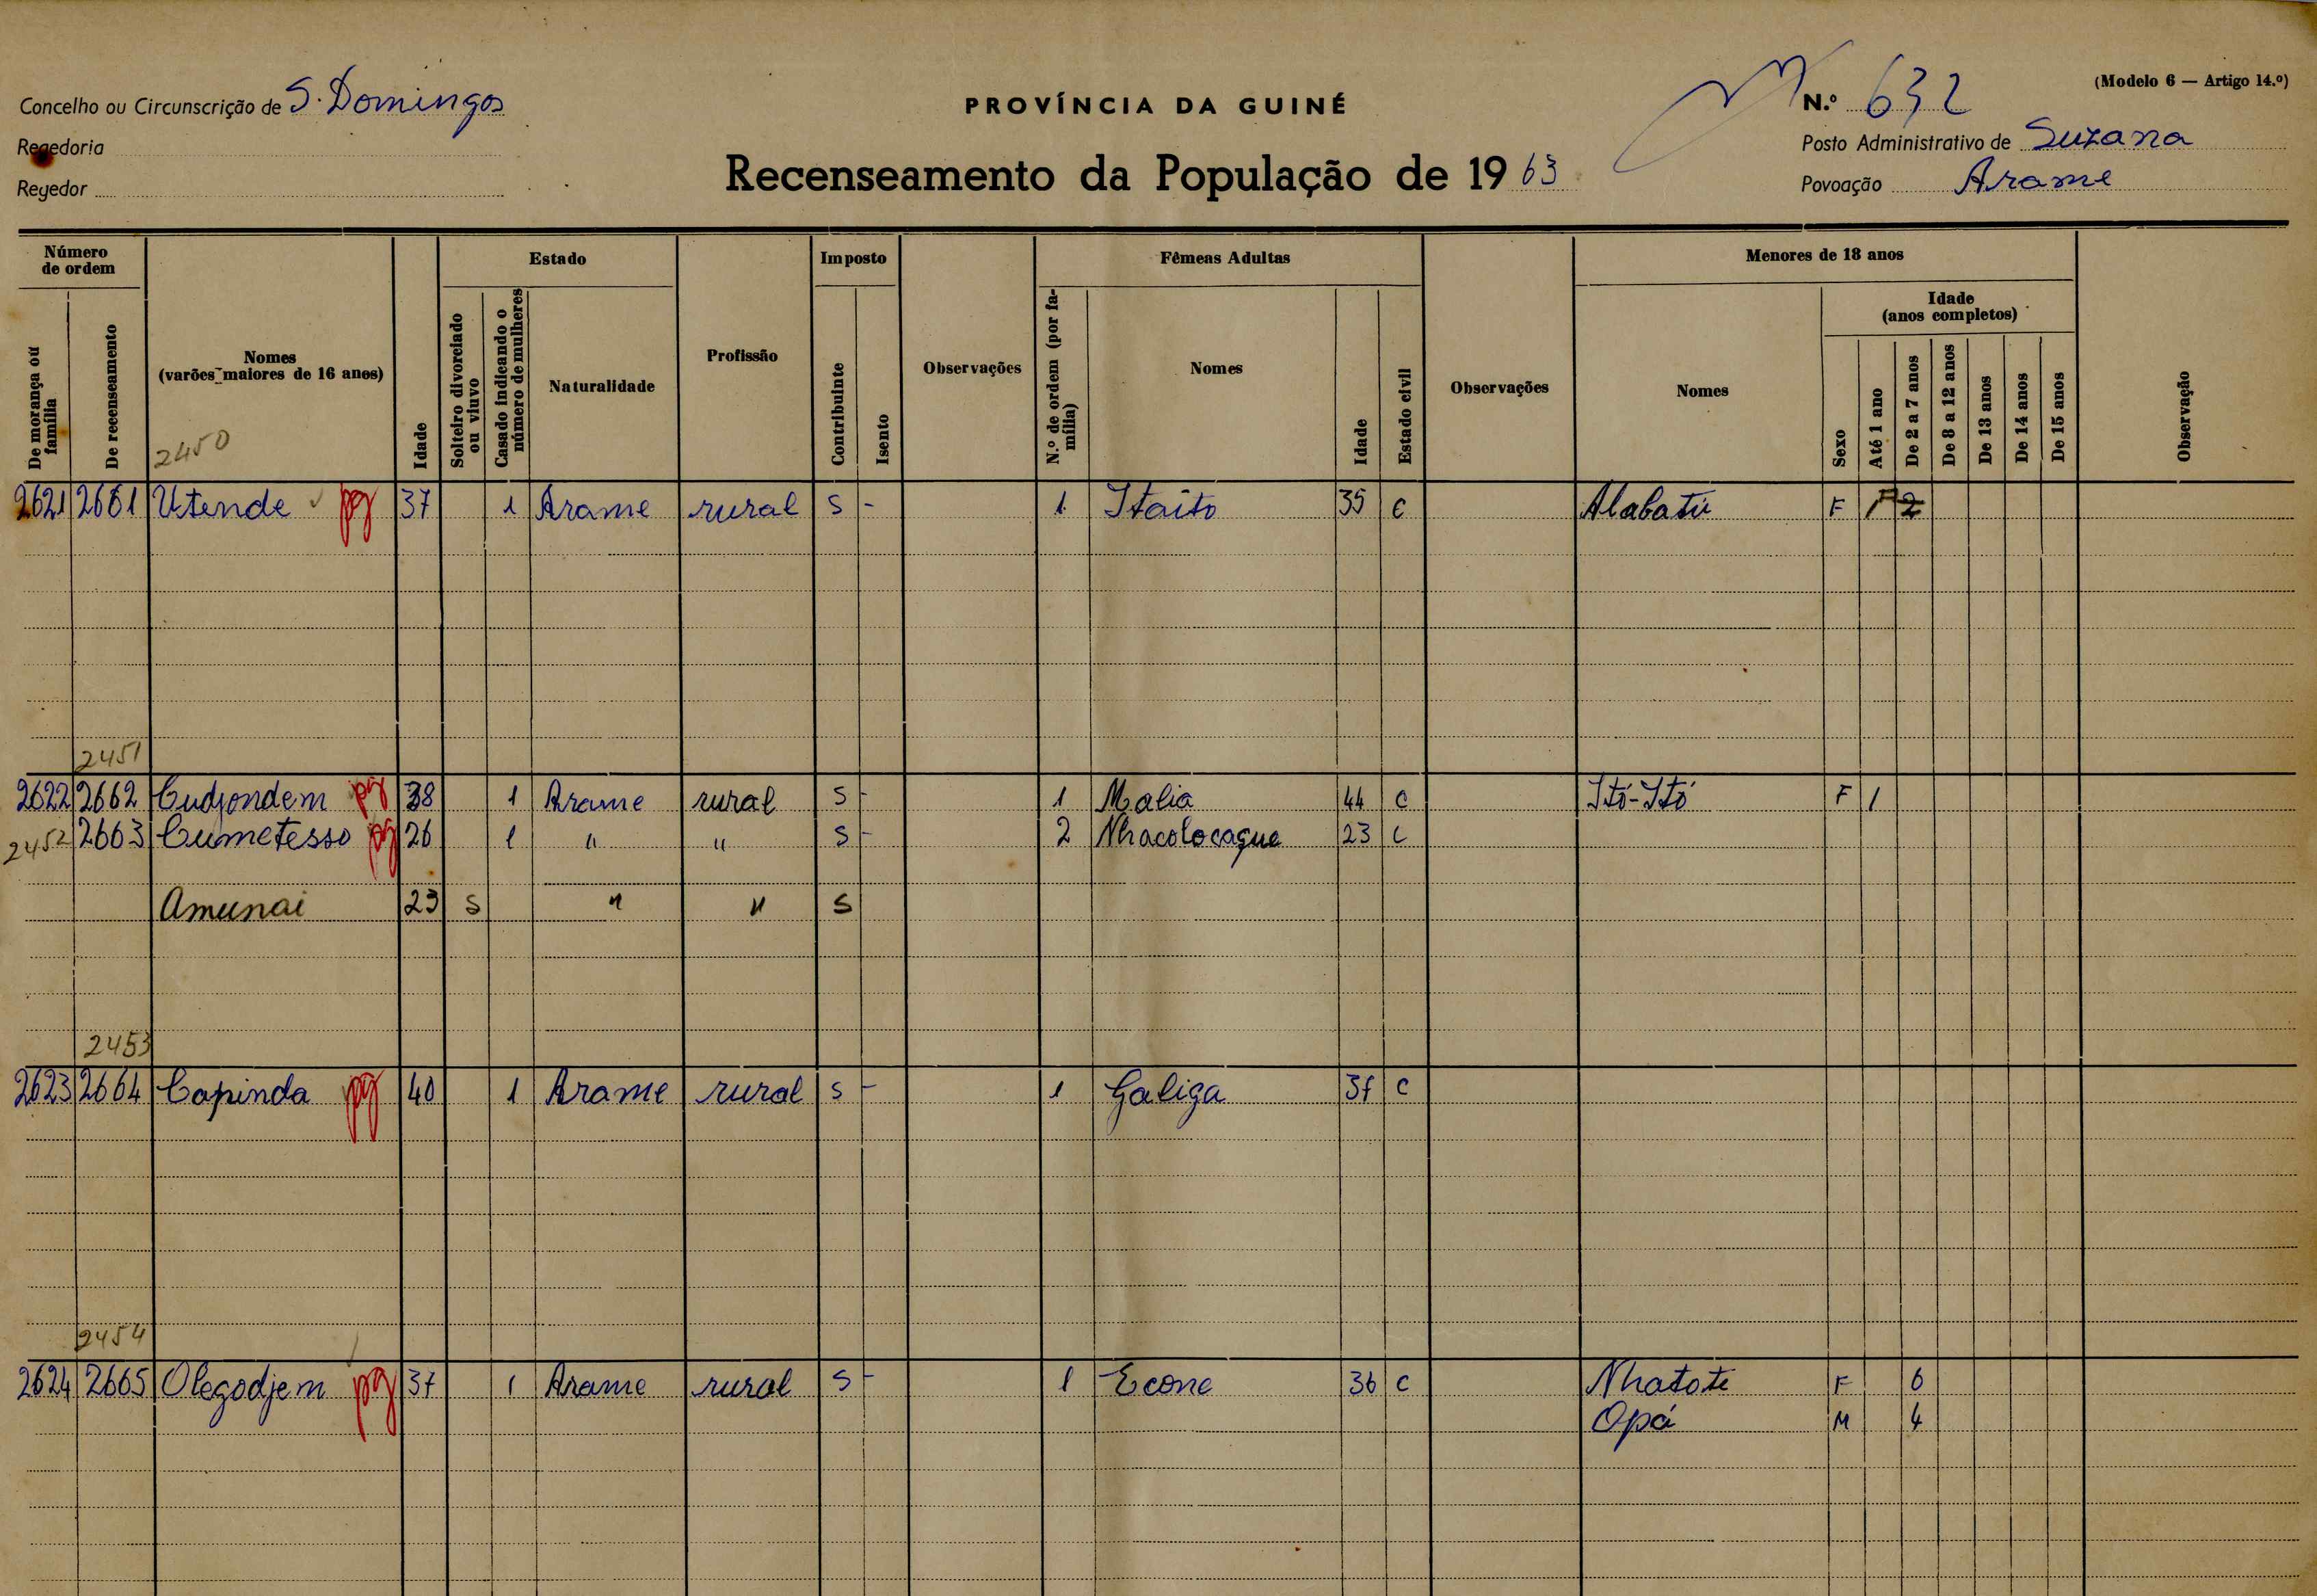 (Modelo 6 — Artigo 14.º)
Concelho ou Circunscrição de S. Domingos
PROVÍNCIA DA GUINÉ
N.º 632
Regedoria
Posto Administrativo de Suzana
Recenseamento da População de 1963
Regedor
Povoação Arame
Número de ordem
Estado
Imposto
Fêmeas Adultas
Menores de 18 anos
De morança ou família
De recenseamento
Nomes (varões maiores de 16 anos)
2450
Idade
Solteiro divorciado ou viuvo
Casado indicando o número de mulheres
Naturalidade
Profissão
Contribuinte
Isento
Observações
N.º de ordem (por família)
Nomes
Idade
Estado civil
Observações
Nomes
Sexo
Idade (anos completos)
Até 1 ano
De 2 a 7 anos
De 8 a 12 anos
De 13 anos
De 14 anos
De 15 anos
Observação
2621 2661 Utende pg 37 1 Arame rural S - 1 Itaíto 35 C Alabatú F 1 2
2451
2622 2662 Cudjondem pg 38 1 Arame rural S - 1 Malia 44 C Itó-Itó F 1
2452 2663 Cumetesso pg 26 1 " " S - 2 Nhacolocague 23 C
Amunai 23 S " " S
2453
2623 2664 Capinda pg 40 1 Arame rural S - 1 Galiga 37 C
2454
2624 2665 Olegodjem pg 37 1 Arame rural S - 1 Econe 36 C Nhatote F 6
Opá M 4